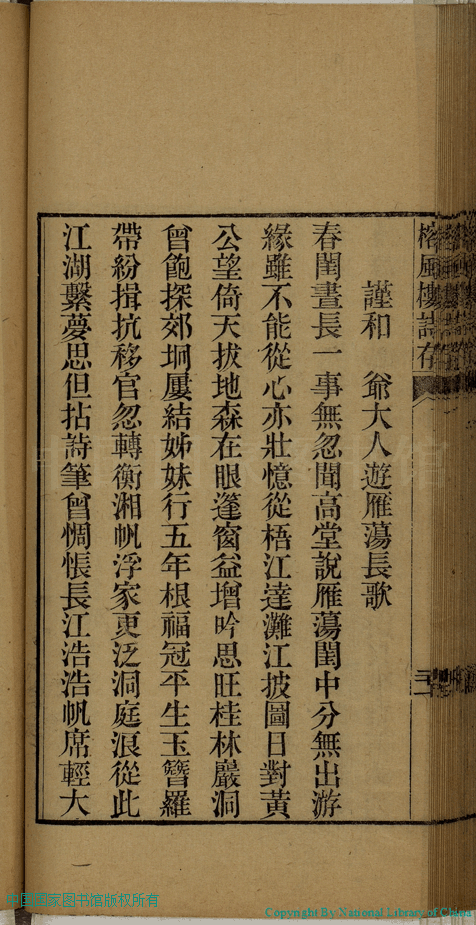 榕風樓詩存
謹和　爺大人遊雁蕩長歌
春閨晝長一事無忽聞高堂說雁蕩閨中分無出游
緣雖不能從心亦壯憶從梧江達灘江披圖日對黃
公望倚天拔地森在眼篷窗益增吟思旺桂林巖洞
曾飽探郊坰屢結姊妹行五年根福冠平生玉簪羅
帶紛揖抗移官忽轉衡湘帆浮家更泛洞庭浪從此
江湖繫夢思但拈詩筆曾惆悵長江浩浩帆席輕大
中国国家图书馆版权所有
Copyright By National Library of China